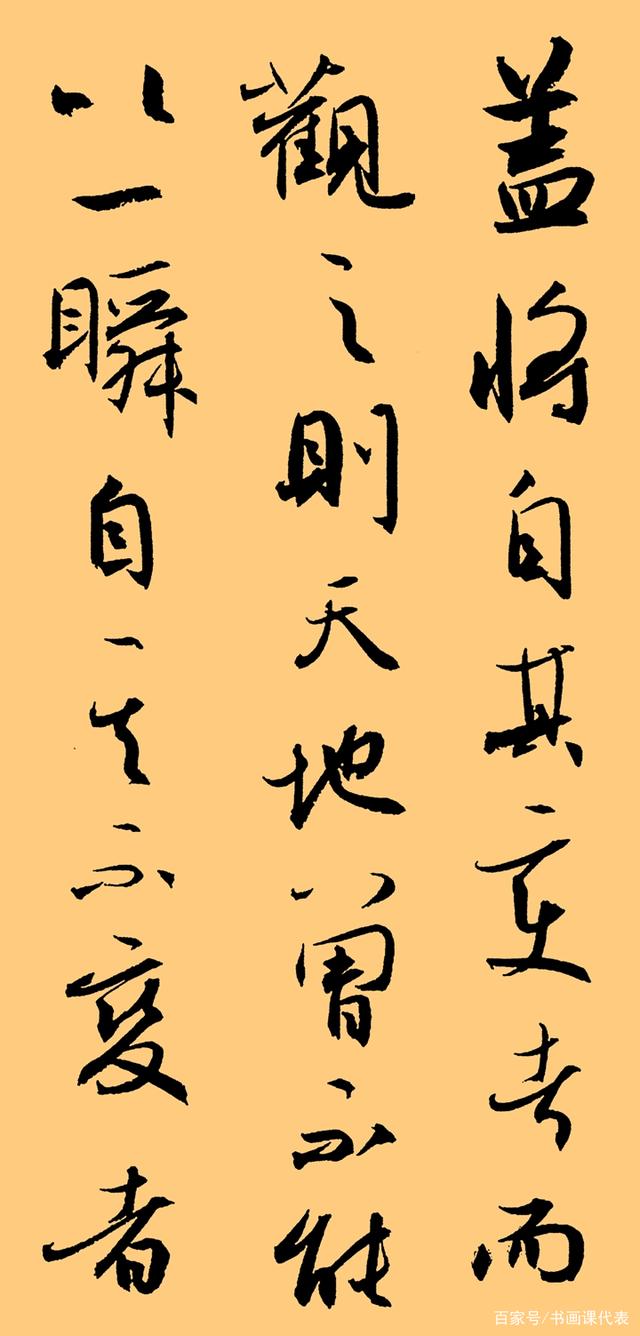 盖将自其变者而
觀之則天地曾不能
以一瞬自其不變者
百家号/书画课代表